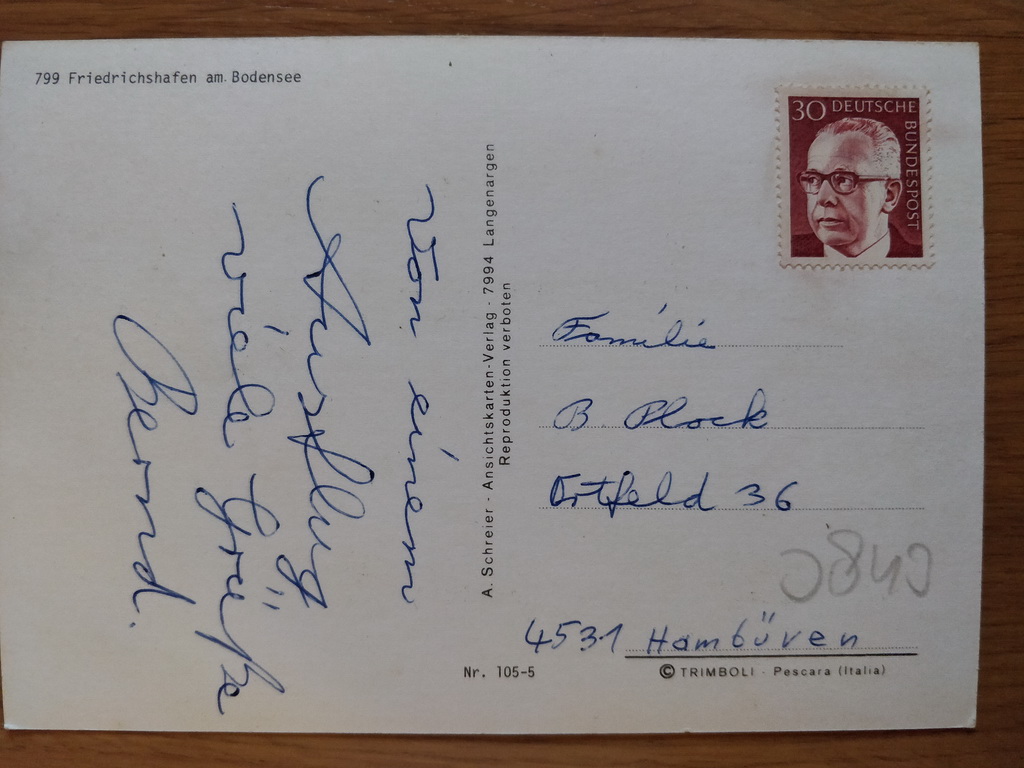 799 Friedrichshafen am Bodensee
Von einem
Ausflug
viele Grüße
Bernd.
A. Schreier · Ansichtskarten-Verlag · 7994 Langenargen
Reproduktion verboten
30 DEUTSCHE BUNDESPOST
Familie
B. Plock
Ortfeld 36
4531 Hambüren
Nr. 105-5
© TRIMBOLI · Pescara (Italia)